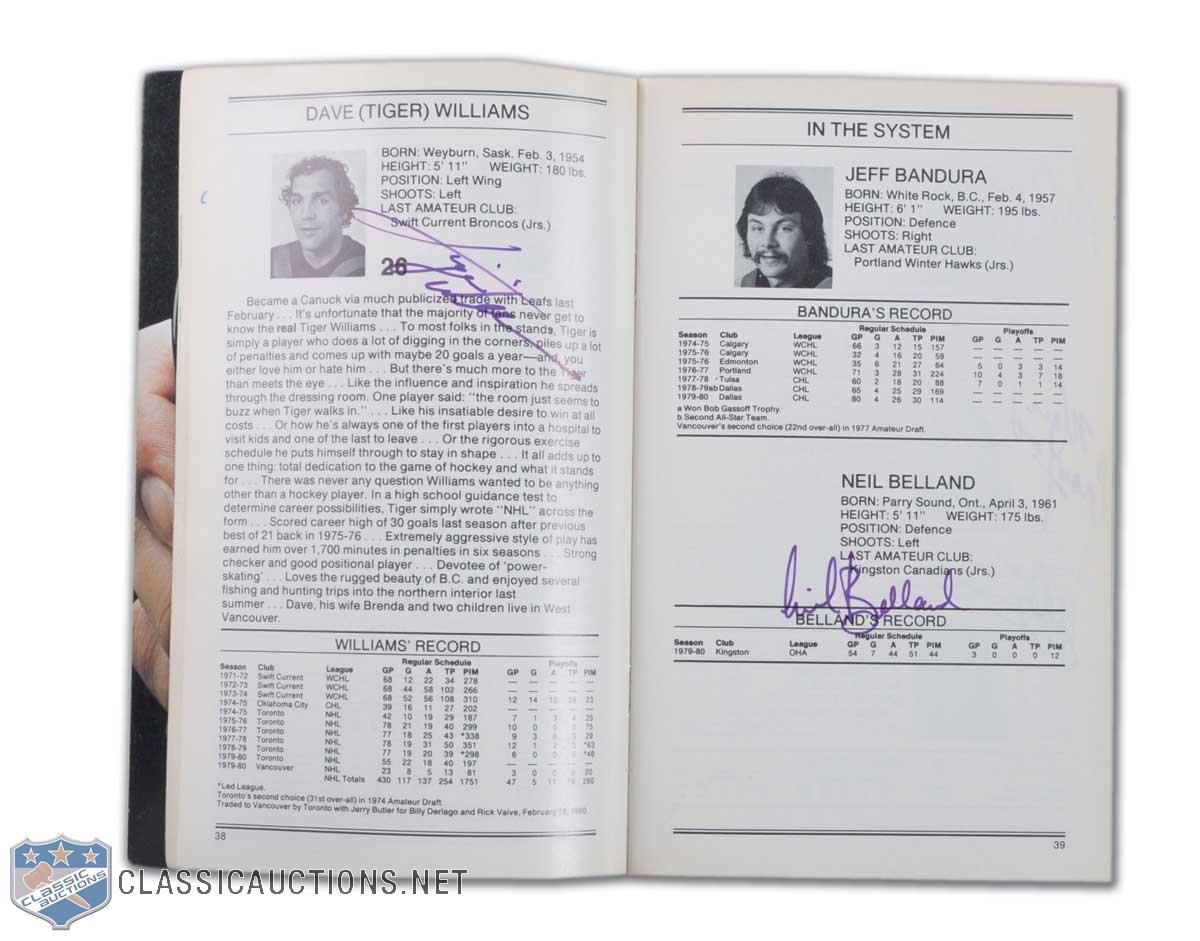 DAVE (TIGER) WILLIAMS
BORN: Weyburn, Sask. Feb. 3, 1954
HEIGHT: 5' 11" WEIGHT: 180 lbs.
POSITION: Left Wing
SHOOTS: Left
LAST AMATEUR CLUB:
Swift Current Broncos (Jrs.)
26
Became a Canuck via much publicized trade with Leafs last
February . . . It's unfortunate that the majority of fans never get to
know the real Tiger Williams . . . To most folks in the stands, Tiger is
simply a player who does a lot of digging in the corners, piles up a lot
of penalties and comes up with maybe 20 goals a year—and you
either love him or hate him . . . But there's much more to the Tiger
than meets the eye . . . Like the influence and inspiration he spreads
through the dressing room. One player said: "the room just seems to
buzz when Tiger walks in." . . . Like his insatiable desire to win at all
costs . . . Or how he's always one of the first players into a hospital to
visit kids and one of the last to leave . . . Or the rigorous exercise
schedule he puts himself through to stay in shape . . . It all adds up to
one thing: total dedication to the game of hockey and what it stands
for . . . There was never any question Williams wanted to be anything
other than a hockey player. In a high school guidance test to
determine career possibilities, Tiger simply wrote "NHL" across the
form . . . Scored career high of 30 goals last season after previous
best of 21 back in 1975-76 . . . Extremely aggressive style of play has
earned him over 1,700 minutes in penalties in six seasons . . . Strong
checker and good positional player . . . Devotee of 'power-
skating' . . . Loves the rugged beauty of B.C. and enjoyed several
fishing and hunting trips into the northern interior last
summer . . . Dave, his wife Brenda and two children live in West
Vancouver.
WILLIAMS' RECORD
Regular Schedule Playoffs
Season Club League GP G A TP PIM GP G A TP PIM
1971-72 Swift Current WCHL 68 12 22 34 278 — — — — —
1972-73 Swift Current WCHL 68 44 58 102 266 — — — — —
1973-74 Swift Current WCHL 68 52 56 108 310 12 14 10 24 23
1974-75 Oklahoma City CHL 39 16 11 27 202 — — — — —
1974-75 Toronto NHL 42 10 19 29 187 7 1 3 4 25
1975-76 Toronto NHL 78 21 19 40 299 10 0 0 0 75
1976-77 Toronto NHL 77 18 25 43 *338 9 3 6 9 29
1977-78 Toronto NHL 78 19 31 50 351 12 1 2 3 *63
1978-79 Toronto NHL 77 19 20 39 *298 6 0 0 0 *48
1979-80 Toronto NHL 55 22 18 40 197 — — — — —
1979-80 Vancouver NHL 23 8 5 13 81 3 0 0 0 20
NHL Totals 430 117 137 254 1751 47 5 11 16 260
*Led League.
Toronto's second choice (31st over-all) in 1974 Amateur Draft.
Traded to Vancouver by Toronto with Jerry Butler for Billy Derlago and Rick Vaive, February 18, 1980.
38
IN THE SYSTEM
JEFF BANDURA
BORN: White Rock, B.C., Feb. 4, 1957
HEIGHT: 6' 1" WEIGHT: 195 lbs.
POSITION: Defence
SHOOTS: Right
LAST AMATEUR CLUB:
Portland Winter Hawks (Jrs.)
BANDURA'S RECORD
Regular Schedule Playoffs
Season Club League GP G A TP PIM GP G A TP PIM
1974-75 Calgary WCHL 66 3 12 15 157 — — — — —
1975-76 Calgary WCHL 32 4 16 20 59 — — — — —
1975-76 Edmonton WCHL 35 6 21 27 64 5 0 3 3 14
1976-77 Portland WCHL 71 3 28 31 224 10 4 3 7 18
1977-78 Tulsa CHL 60 2 18 20 88 7 0 1 1 14
1978-79ab Dallas CHL 65 4 25 29 169 — — — — —
1979-80 Dallas CHL 80 4 26 30 114 — — — — —
a Won Bob Gassoff Trophy.
b Second All-Star Team.
Vancouver's second choice (22nd over-all) in 1977 Amateur Draft.
NEIL BELLAND
BORN: Parry Sound, Ont., April 3, 1961
HEIGHT: 5' 11" WEIGHT: 175 lbs.
POSITION: Defence
SHOOTS: Left
LAST AMATEUR CLUB:
Kingston Canadians (Jrs.)
Neil Belland
BELLAND'S RECORD
Regular Schedule Playoffs
Season Club League GP G A TP PIM GP G A TP PIM
1979-80 Kingston OHA 54 7 44 51 44 3 0 0 0 12
39
CLASSIC AUCTIONS
CLASSICAUCTIONS.NET